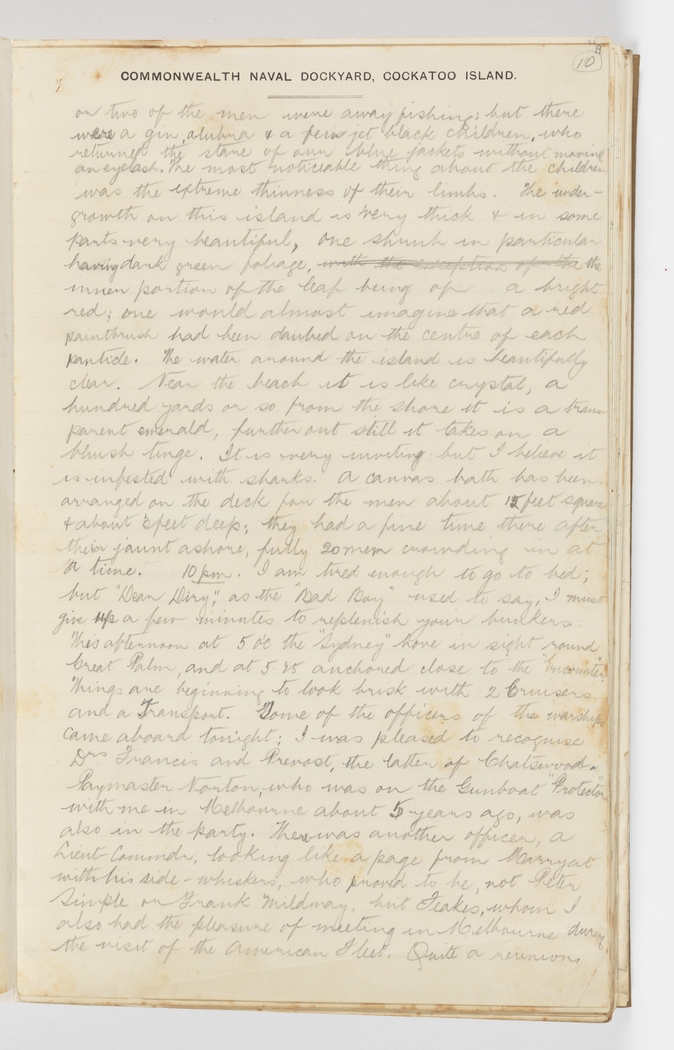 10
COMMONWEALTH NAVAL DOCKYARD, COCKATOO ISLAND.
or two of the men were away fishing; but there
were a gin, alubra & a few jet black children, who
returned the stare of our blue jackets without moving
an eyelash. The most noticeable thing about the children
was the extreme thinness of their limbs. The under-
growth on this island is very thick & in some
parts very beautiful, one shrub in particular
having dark green foliage, with the exception of the the
inner portion of the leaf being of a bright
red; one would almost imagine that a red
paintbrush had been daubed on the centre of each
particle. The water around the island is beautifully
clear. Near the beach it is like crystal, a
hundred yards or so from the shore it is a trans
parent emerald, further out still it takes on a
bluish tinge. It is very inviting but I believe it
is infested with sharks. A canvas bath has been
arranged on the deck for the men about 15 feet square
& about 3 feet deep; they had a fine time there after
their jaunt ashore, fully 20 men crowding in at
a time. 10 pm. I am tired enough to go to bed;
but "Dear Diry", as the "Bad Boy" used to say, I must
give up a few minutes to replenish your bunkers.
This afternoon at 5 oC the "Sydney" hove in sight round
Great Palm, and at 5.25 anchored close to the "Encounter".
Things are beginning to look brisk with 2 Cruisers
and a Transport. Some of the officers of the warships
came aboard tonight; I was pleased to recognise
Drs Francis and Prevost, the latter of Chatswood.
Paymaster Norton, who was on the Gunboat "Protector"
with me in Melbourne about 5 years ago, was
also in the party. There was another officer, a
Lieut-Commdr, looking like a page from Marryat
with his side-whiskers, who proved to be, not Peter
Simple or Frank Mildmay, but Feakes, whom I
also had the pleasure of meeting in Melbourne during
the visit of the American Fleet. Quite a reunion.